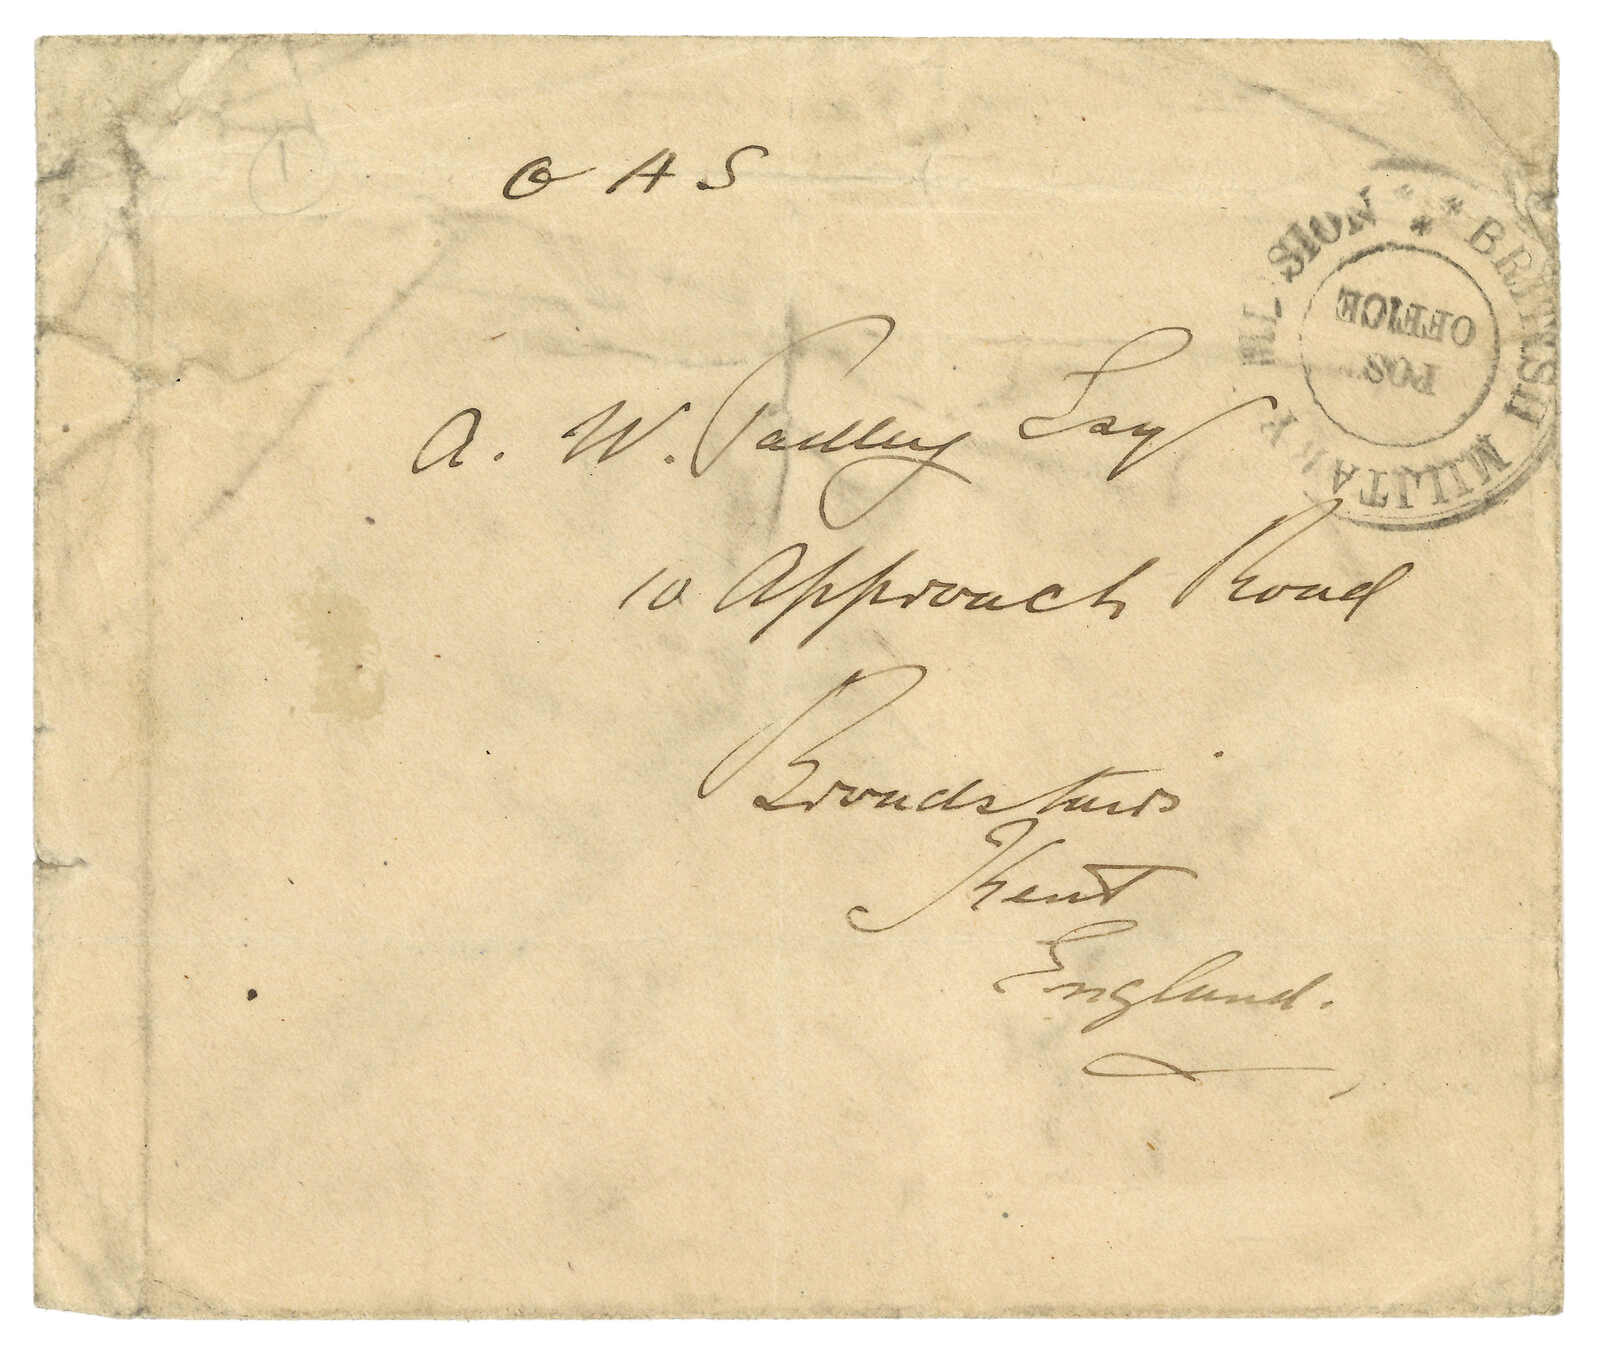 O A S
A. W. Padley Esq
10 Approach Road
Broadstairs
Kent
England.
BRITISH MILITARY MISSION
POS
OFFICE
1